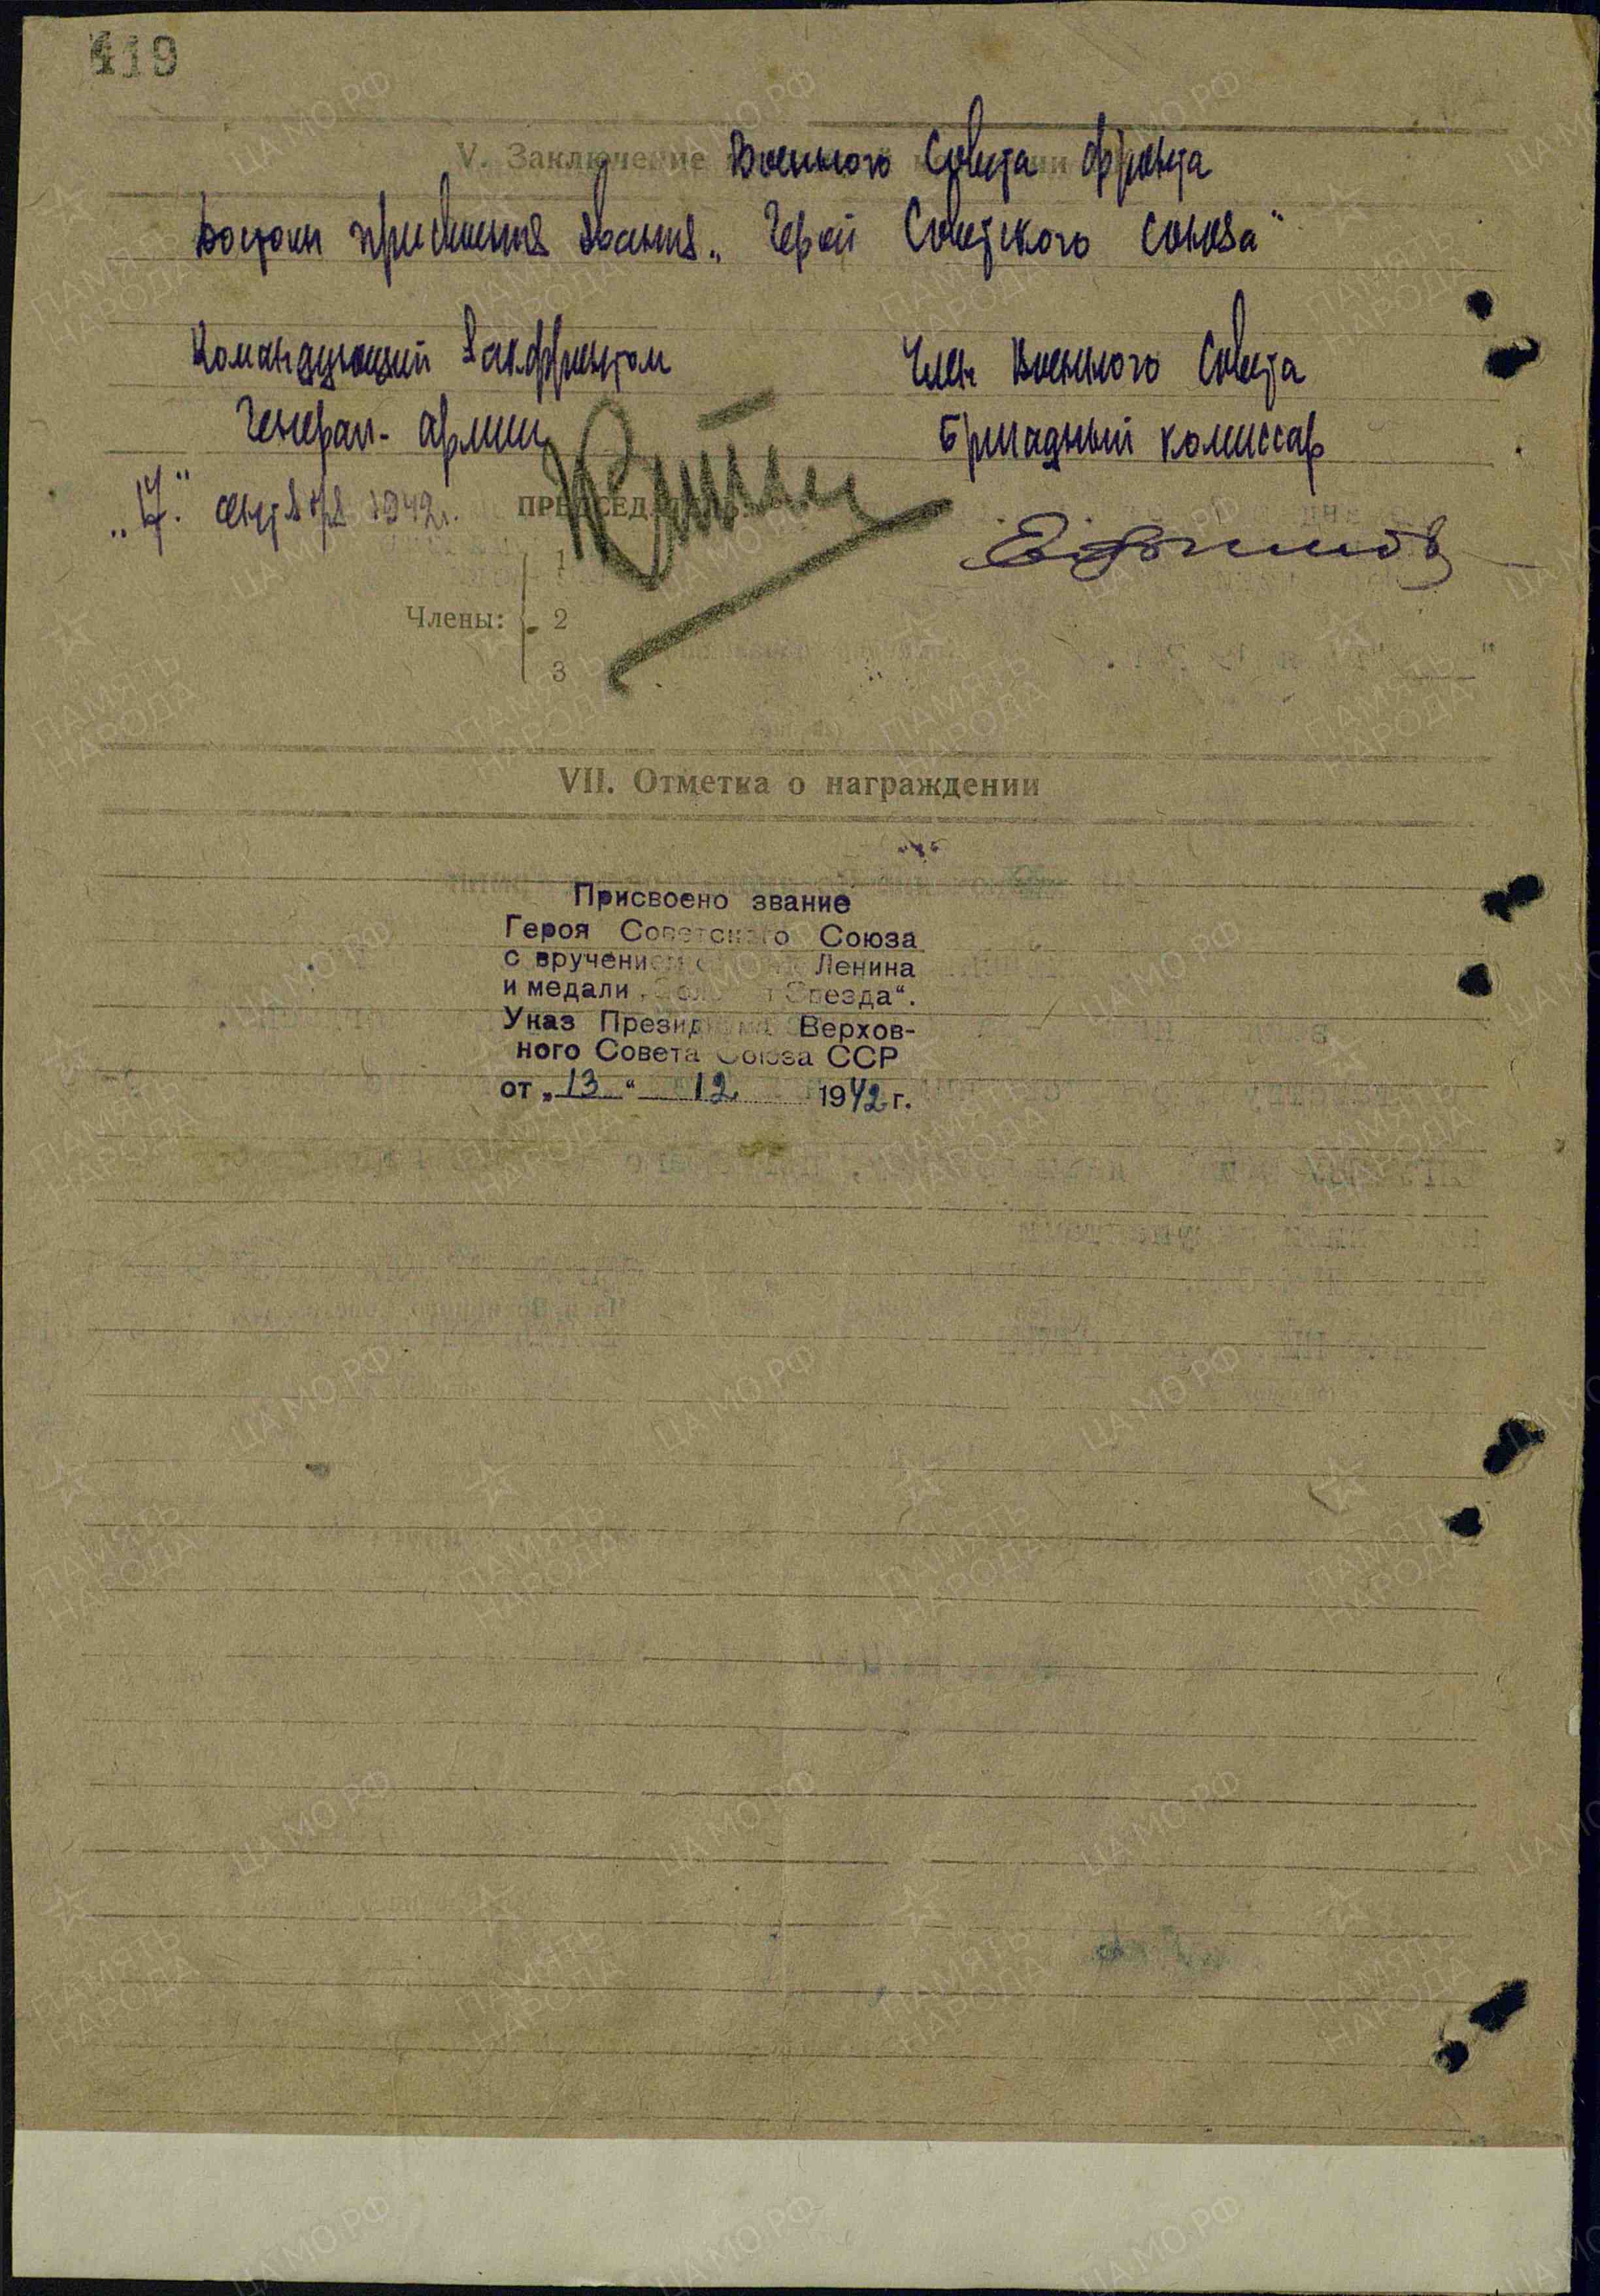 419
V. Заключение Военного Совета фронта
Достоин присвоения звания „Герой Советского Союза“
Командующий Закфронтом
Генерал-армии
Член Военного Совета
Бригадный комиссар
„17.“ октября 1942г.
ПРЕДСЕД
Ефимов
Члены:
1
2
3
VII. Отметка о награждении
Присвоено звание
Героя Советского Союза
с вручением Ленина
и медали „Золотая Звезда“.
Указ Президиума Верхов-
ного Совета Союза ССР
от „13“ 12 1942 г.
ПАМЯТЬ НАРОДА
ЦА МО РФ